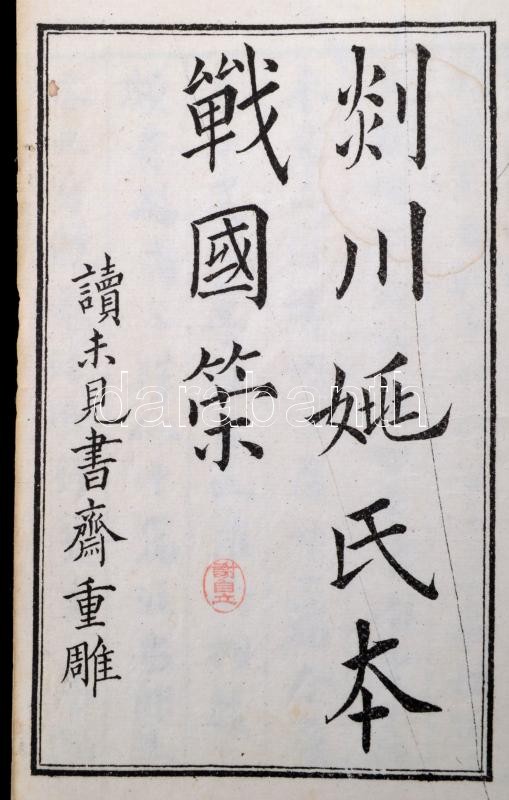 剡川姚氏本
戰國策
讀未見書齋重雕
謝自立
darabanth